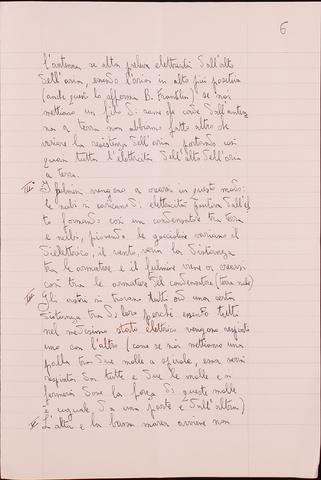 6
l'antenna se alta preleva elettricità dall'alto
dell'aria, essendo l'aria in alto più positiva
(anche questo lo afferma B. Franklin) se noi
mettiamo un filo di rame che cade dall'anten
na a terra non abbiamo fatto altro che
variare la resistenza dell'aria portando così
quasi tutta l'elettricità dell'alto dell'aria
a terra.
I fulmini vengono a crearsi in questo modo:
le nubi si caricano di elettricità positiva dall'al
to formando così un condensatore tra terra
e nube, piovendo le goccioline variano il
dielettrico, il vento, varia la distanza
tra le armature e il fulmine viene a crearsi
così tra le armature del condensatore (terra nube)
Gli astri si trovano tutti ad una certa
distanza tra di loro perché essendo tutti
nel medesimo stato elettrico vengono respinti
uno con l'altro (come se noi mettiamo una
palla tra due molle a spirale, essa verrà
respinta da tutte e due le molle e si
fermerà dove la forza di queste molle
è uguale, da una parte e dall'altra)
L'alta e la bassa marea avviene non